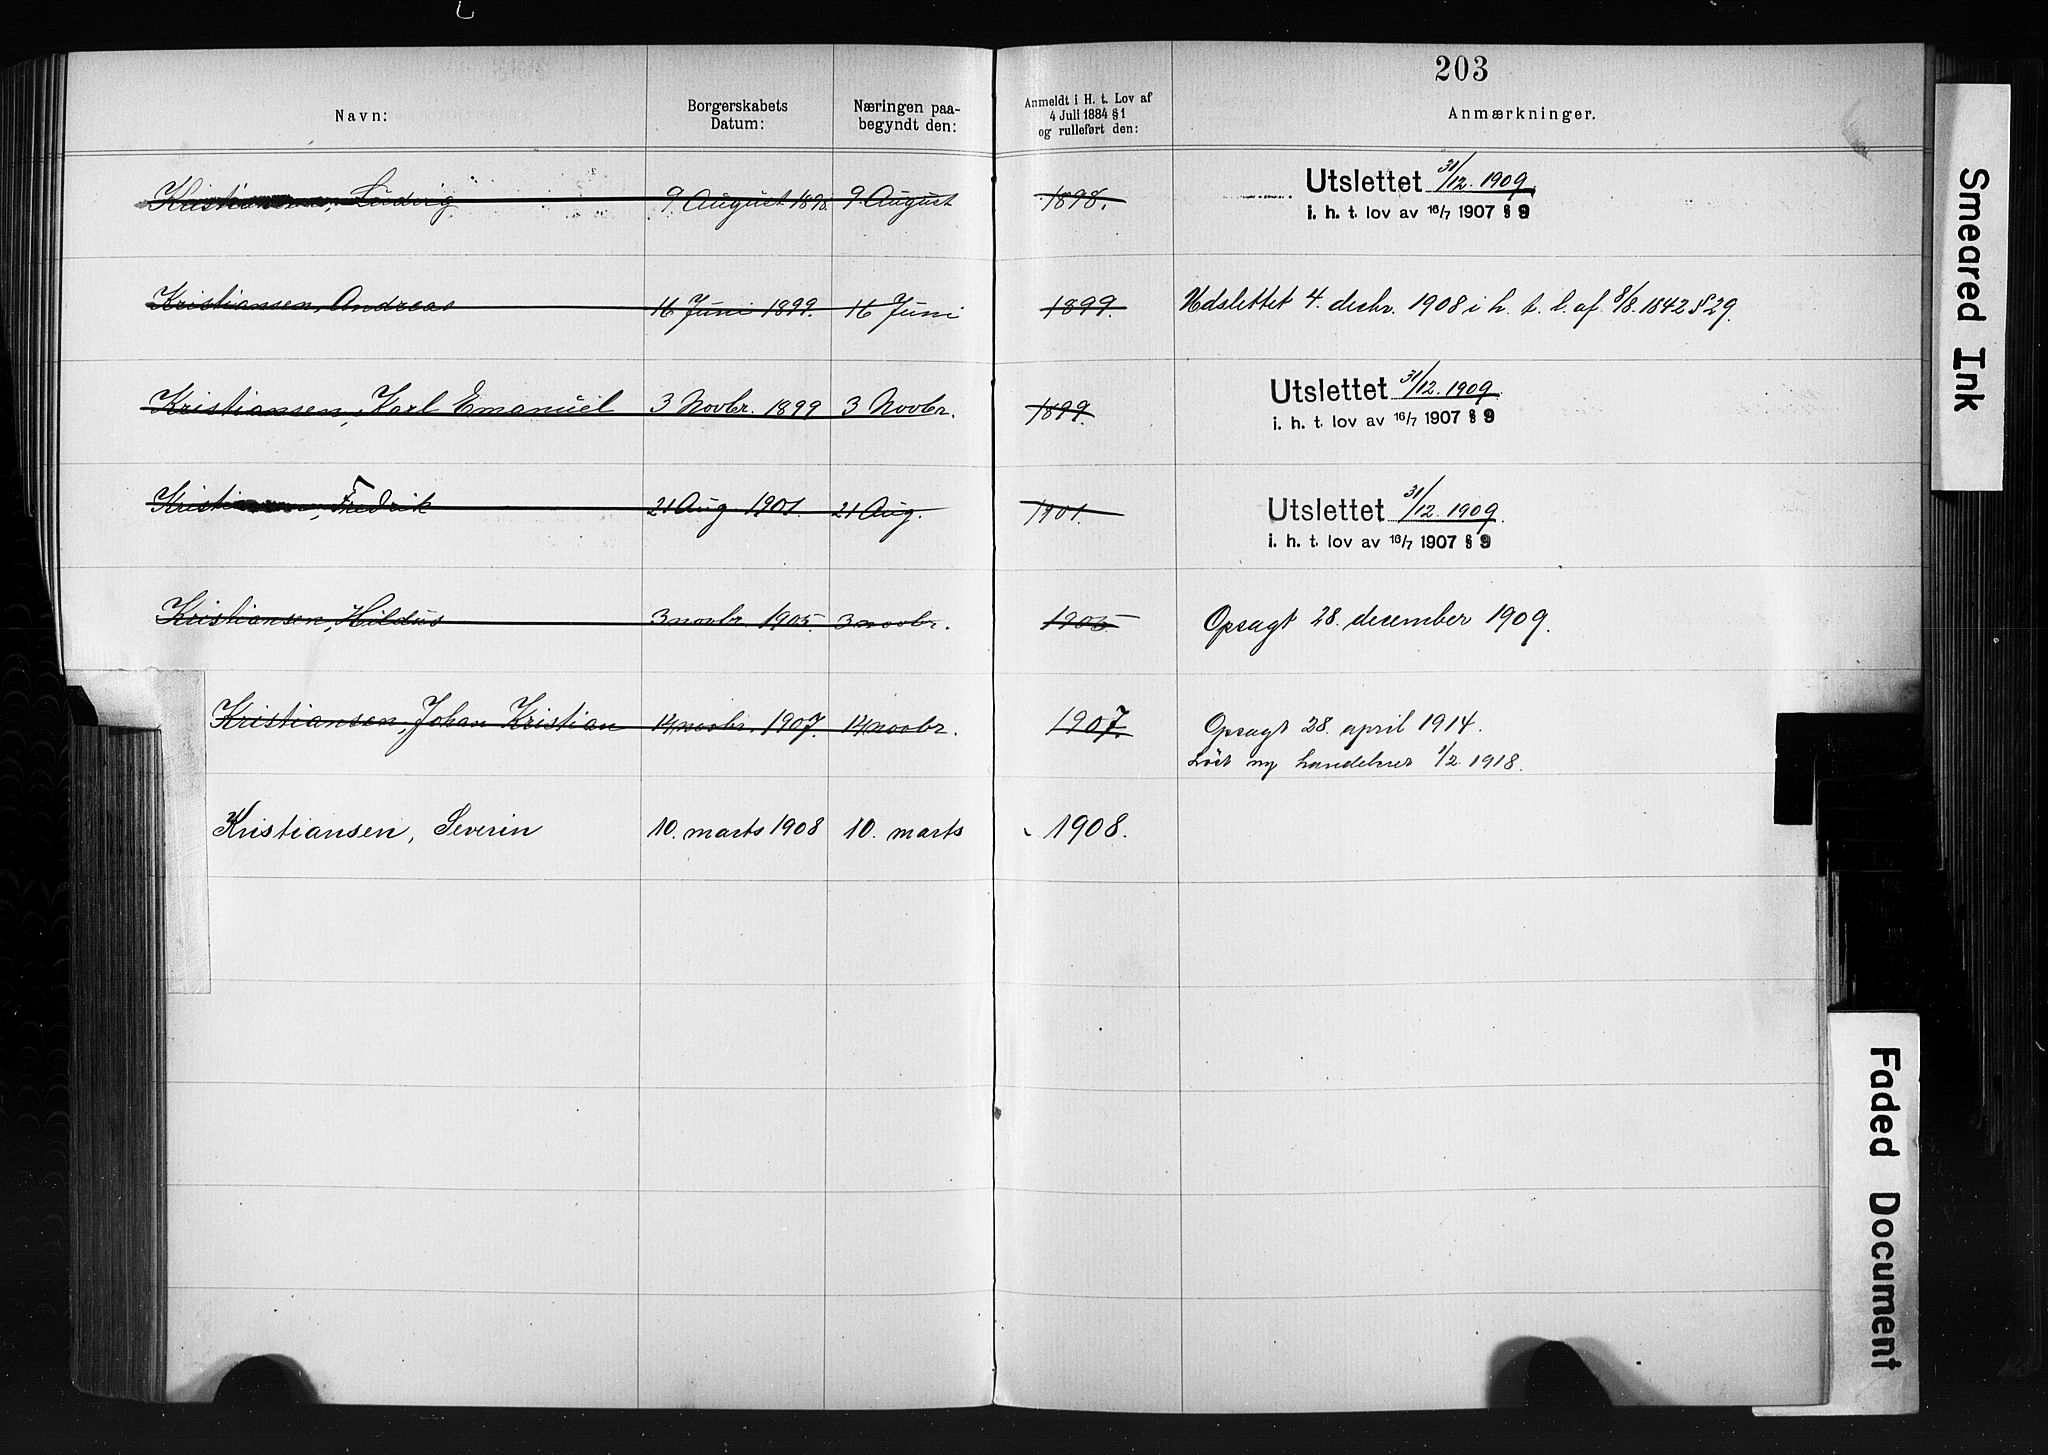 203
Navn:
Borgerskabets Datum:
Næringen paa-
begyndt den:
Anmeldt i H. t. Lov af
4 Juli 1884 § 1
og rulleført den:
Anmærkninger.
Kristiansen, Ludvig 9 August 1898. 9. August 1898. Utslettet 31/12. 1909.
i. h. t. lov av 16/7 1907 § 9
Kristiansen, Andreas 16 Juni 1899. 16 Juni 1899. Udslettet 4. decbr. 1908 i h. t. l. af 8/8. 1842 § 29.
Kristiansen, Karl Emanuel 3 Novbr. 1899 3 Novbr. 1899. Utslettet 31/12. 1909.
i. h. t. lov av 16/7 1907 § 9
Kristiansen, Fredrik 21 Aug. 1901. 21 Aug. 1901. Utslettet 31/12. 1909.
i. h. t. lov av 16/7 1907 § 9
Kristiansen, Hildus 3 novbr. 1905. 3 novbr. 1905. Opsagt 28. december 1909.
Kristiansen, Johan Kristian 14 novbr. 1907. 14 novbr. 1907. Opsagt 28. april 1914.
Löst ny 1/2. 1918.
Kristiansen, Severin 10. marts 1908 10. marts 1908.
Smeared Ink
Faded Document